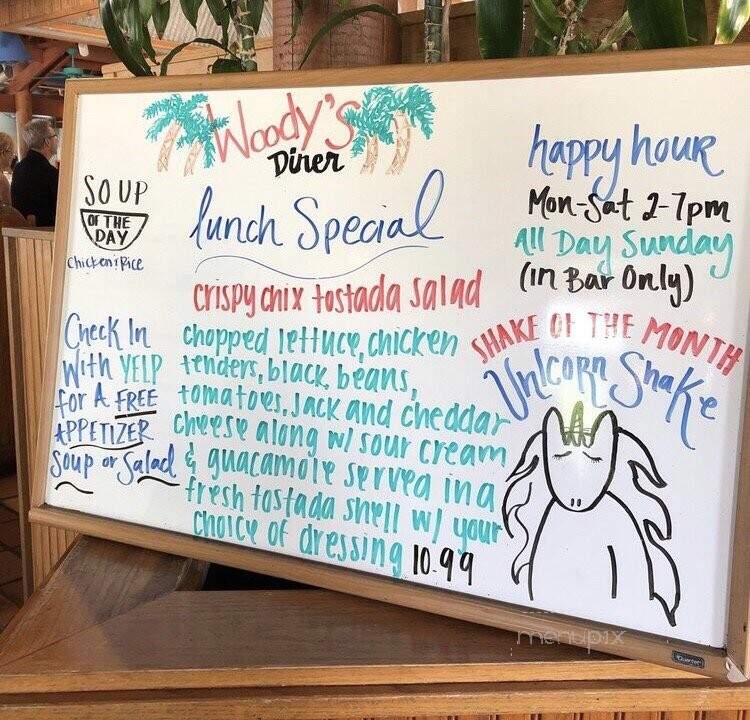 Woody's
Diner
SOUP
OF THE
DAY
Chicken & Rice
Check In
With YELP
for A FREE
APPETIZER
Soup or Salad
lunch Special
crispy chix tostada salad
chopped lettuce, chicken
tenders, black beans,
tomatoes, Jack and cheddar
cheese along w/ sour cream
& guacamole served in a
fresh tostada shell w/ your
choice of dressing 10.99
happy hour
Mon-Sat 2-7pm
All Day Sunday
(in Bar Only)
SHAKE OF THE MONTH
Unicorn Shake
menupix
Quartet